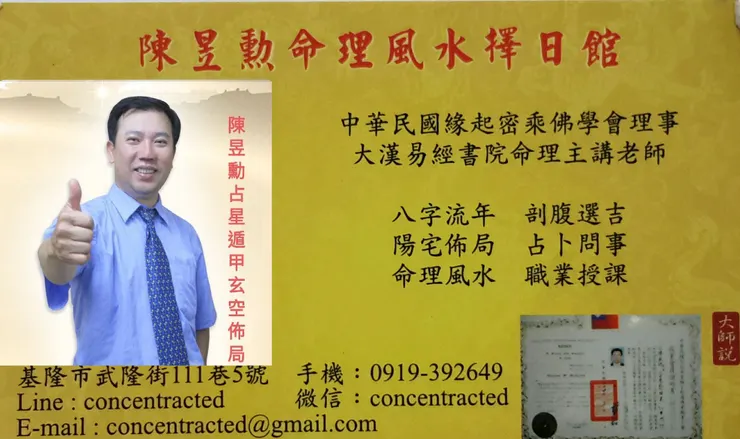 陳昱勲命理風水擇日館
陳昱勲占星遁甲玄空佈局
中華民國緣起密乘佛學會理事
大漢易經書院命理主講老師
八字流年 剖腹選吉
陽宅佈局 占卜問事
命理風水 職業授課
大師說
基隆市武隆街111巷5號 手機：0919-392649
Line : concentracted 微信：concentracted
E-mail : concentracted@gmail.com